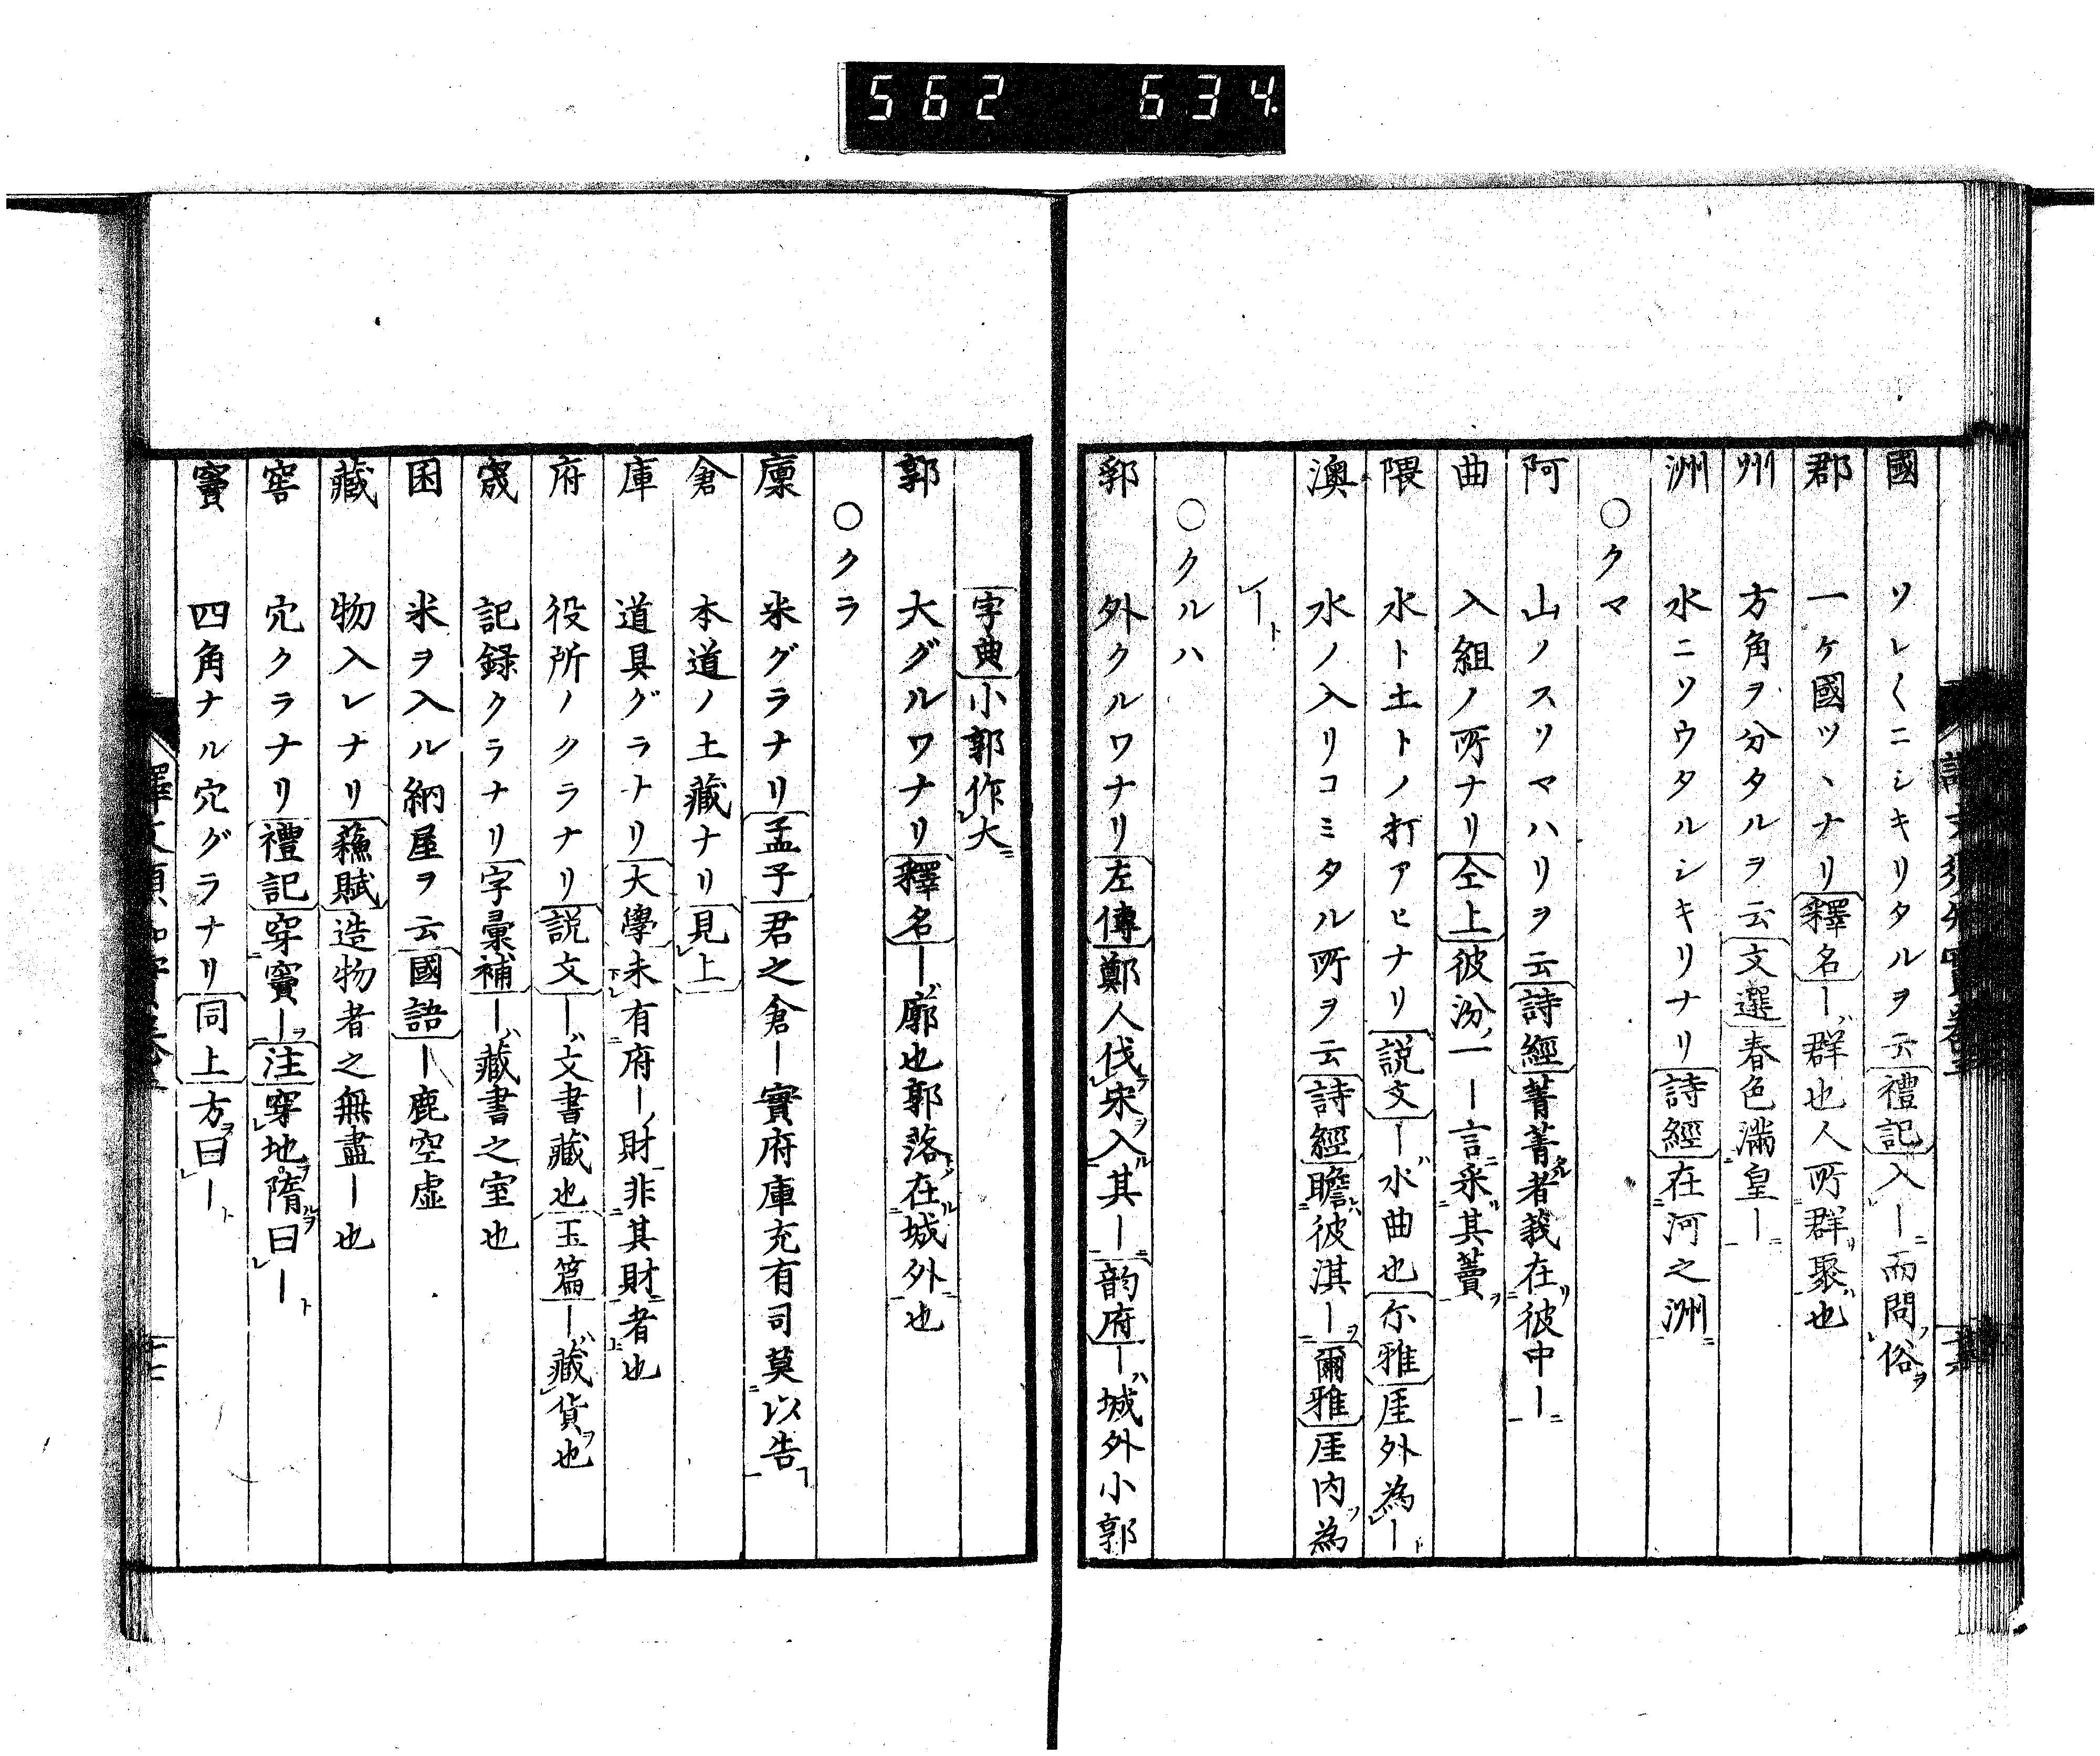 562 634
國 ソレ〱ニシキリタルヲ云禮記入ー而問俗
郡 一ケ國ツヽナリ釋名ー群也人所群聚也
州 方角ヲ分タルヲ云文選春色滿皇ー
洲 水ニソウタルシキリナリ詩經在河之洲
○クマ
阿 山ノスソマハリヲ云詩經菁菁者莪在彼中ー
曲 入組ノ所ナリ仝上彼汾一ー言采其藚
隈 水ト土トノ打アヒナリ説文ー水曲也尓雅厓外為ー
澳 水ノ入リコミタル所ヲ云詩經瞻彼淇ー爾雅厓内為
ー
○クルハ
郛 外クルワナリ左傳鄭人伐宋入其ー韵府ー城外小郭
字典小郭作大
郭 大グルワナリ釋名ー廓也郭落在城外也
○クラ
廩 米グラナリ孟子君之倉ー實府庫充有司莫以告
倉 本道ノ土藏ナリ見上
庫 道具グラトリ大學未有府ー財非其財者也
府 役所ノクラナリ説文ー文書藏也玉篇ー藏貨也
宬 記録クラナリ字彙補ー藏書之室也
囷 米ヲ入ル納屋ヲ云國語ー鹿空虚
藏 物入レナリ蘓賦造物者之無盡ー也
窖 穴クラナリ禮記穿竇ー注穿地隋曰ー
竇 四角ナル穴グラナリ同上方曰ー